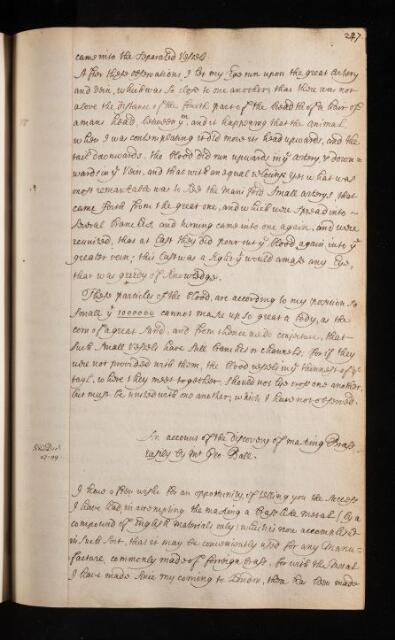 247
came into the separated Vessels.
After these observations I let my Eye run upon the great Artery
and Vein, which was so close to one another, that there was not
above the distance of the fourth part of the breadth of a hair of
a mans head, between ym, and it happening that the Animal
when I was contemplating it did move its head upwards, and the
tail downwards, the blood did run upwards in ye artery, & down-
wards in ye Vein, and that with an equal swiftness, yet what was
most remarkable was to see the manifold small arterys, that
came forth from the great one, and which were spread into
several branches, and turning came into one again, and were
reunited, that at last they did pour out ye blood again into ye
greater vein; this last was a sight yt would amaze any Eye,
that was greedy of knowledge.
These particles of the blood, are according to my position, so
small yt 1000000 cannot make up so great a body, as the
corn of a great Sand, and from thence we do conjecture, that
such small vessels have such branches or channels; for if they
were not provided with them, the blood vessels in ye thinness of ye
tayl, where they meet together, should not lye cross one another,
but must be united with one another, which I have not observed.
An account of the discovery of making Brass
easily by Mr. Geo. Ball.
I have often wisht for an opportunity of telling you the success
I have had, in attempting the making a Brass like metal (by a
compound of English materials only) which is now accomplished
in such sort, that it may be conveniently used for any Manu-
facture, commonly made of forreign brass. For with the metal
I have made since my coming to London, there has been made